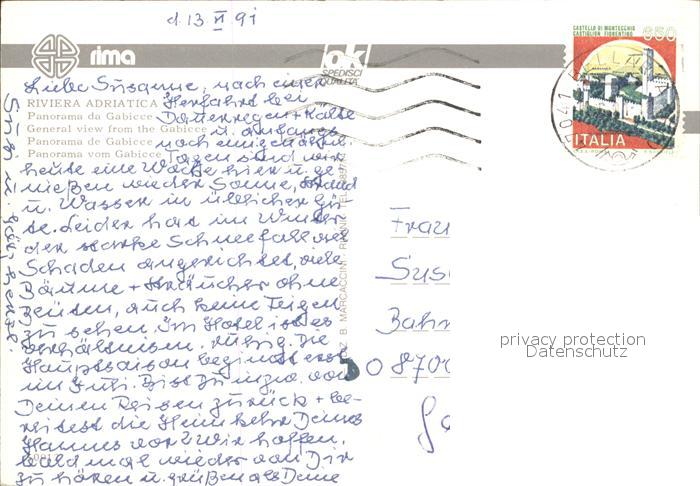 d. 13. VI 91
rima
ok
SPEDISCI
QUALITA'
CASTELLO DI MONTECCHIO
CASTIGLION FIORENTINO
650
ITALIA
RIVIERA ADRIATICA
Panorama da Gabicce
General view from the Gabicce
Panorama de Gabicce
Panorama vom Gabicce
Liebe Susanne, nach einer
Herfahrt bei
Dauerregen + Kälte
u. anfangs
noch einigen
Tagen sind wir
heute eine Woche hier u. ge-
nießen wieder Sonne, Strand
u. Wasser in üblicher Gü-
te. Leider hat im Winter
der starke Schneefall viel
Schaden angerichtet, viele
Bäume + Sträucher ohne
Blüten, auch keine Feigen
zu sehen. Im Hotel ist es
verhältnism. ruhig. Die
Hauptsaison beginnt erst
im Juli. Bist Du inzw. von
Deinen Reisen zurück + be-
reitest die Heimkehr Deines
Hannes vor? Wir hoffen,
bald mal wieder von Dir
zu hören u. grüßen als Deine
Frau
Sus
Bahn
O 870
privacy protection
Datenschutz